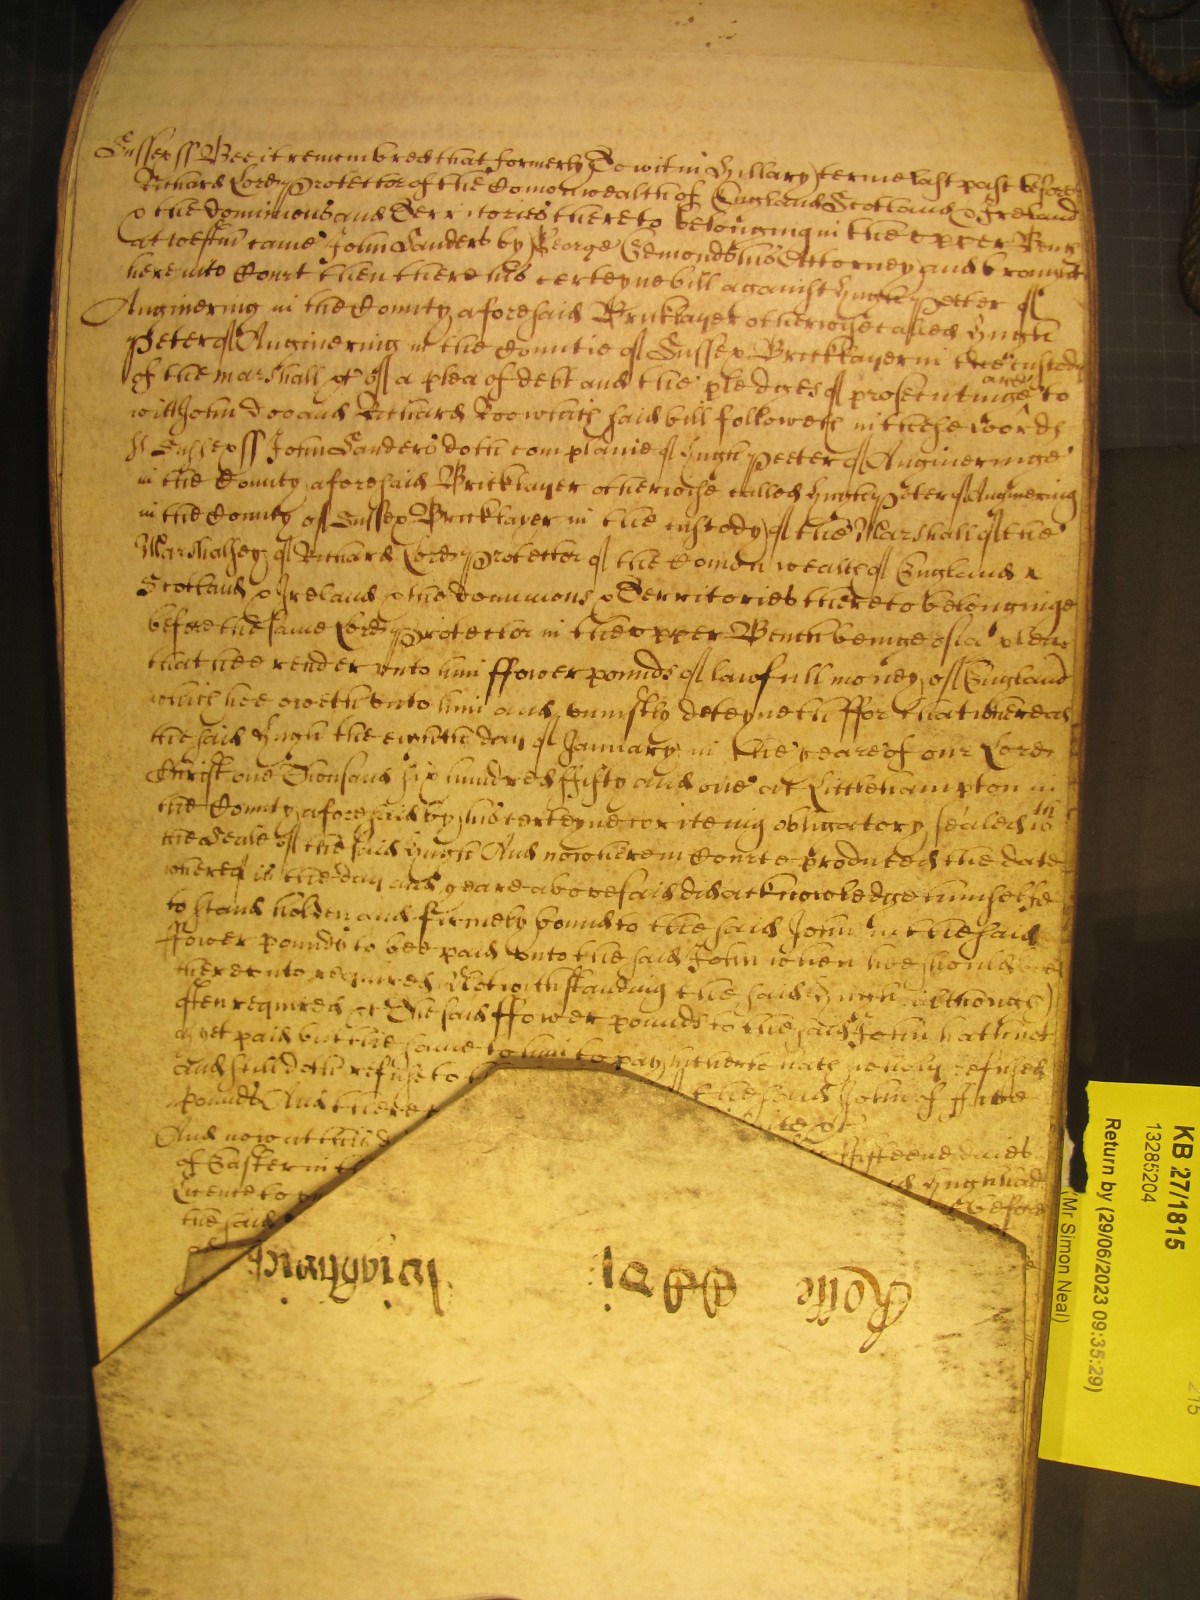 Sussex ss Bee it remembred that formerly To wit in Hillary terme last past before
Richard Lord Protector of the Comonwealth of England Scotland & Ireland
& the dominions and Territories thereto belonging in the upper Bench
at Westm came John Sanders by George Edmonds his Attorney and brought
here into Court then there his certeyne bill against Hugh Peter of
Anginering in the County aforesaid Bricklayer otherwise called Hugh
Peter of Anginering in the Countie of Sussex Bricklayer in the custody
of the marshall &c of a plea of debt and the pledges of prosecutinge are to
witt John Doo and Richard Roo which said bill followeth in these words
ss Sussex ss John Sanders doth complaine of Hugh Peeter of Angineringe
in the County aforesaid Bricklayer otherwise called Hugh Peter of Anginering
in the County of Sussex Bricklayer in the custody of the Marshall of the
Marshalsey of Richard Lord Protector of the Comon wealth of England &
Scotland & Ireland & the dominions & Territories thereto belonginge
before the same Lord Protector in the upper Bench beinge of a plea
that hee render unto him ffower pounds of lawfull money of England
which hee oweth unto him and uniustly deteyneth ffor that whereas
the said Hugh the eighth day of January in the yeare of our Lord
Christ one Thousand six hundred ffifty and one at Littlehampton in
the County aforesaid by his certeyne writeing obligatory sealed with
the Seale of the said Hugh And now here in Courte produced the date
whereof is the day and yeare abovesaid did acknowledge himselfe
to stand holden and firmely bound to the said John in the said
ffower pounds to bee paid unto the said John when hee should bee
thereunto required Notwithstanding the said Hugh (although)
often required &c The said ffower pounds to the said John hath not
as yet paid but the same to him to pay hitherto hath refused
and still doth refuse to the said John of ffive
pounds And there
And now at this d ffifteene daies
of Easter in th said Hugh had
Licence to before
the said
KB 27/1815
13285204
Return by (29/06/2023 09:35:29)
(Mr Simon Neal)
215
Rolle